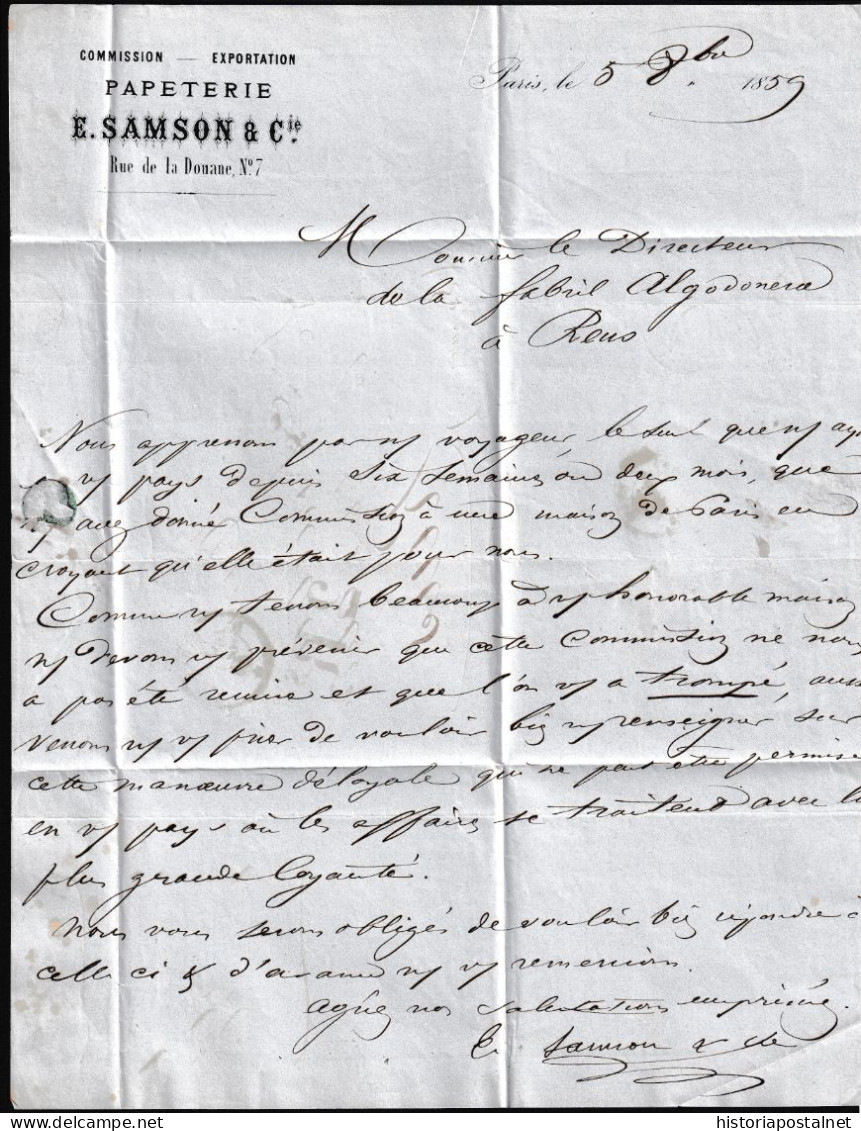 COMMISSION — EXPORTATION
PAPETERIE
E. SAMSON & Cie.
Rue de la Douane, No. 7
Paris, le 5 8bre 1859
Monsieur le Directeur
de la fabril Algodonera
à Reus
Nous apprenons par ns voyageur, le seul que ns ay
vs pays depuis six semaines ou deux mois, que
avez donné Commission à une maison de Paris en
croyant qu'elle était pour nous.
Comme ns tenons beaucoup à vs honorable maison
ns devons vs prévenir que cette Commission ne nous
a pas été remise et que l'on vs a trompé, auss
venons ns vs prier de vouloir bien ns renseigner sur
cette manœuvre déloyale qui ne peut être permise
en vs pays où les affaires se traitent avec la
plus grande loyauté.
Nous vous serons obligés de vouloir bien répondre à
celle ci & d'avance ns vs remercions.
Agréez nos salutations empressées.
E. Samson & Cie
historiapostalnet